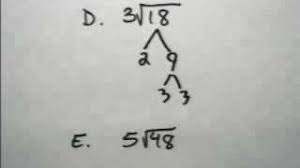 D. 3√18
2 9
3 3
E. 5√48